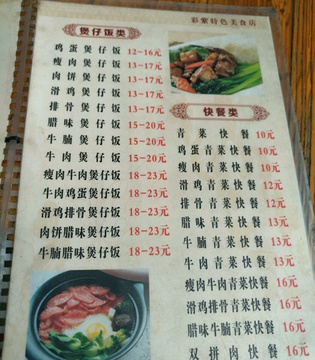 彩紫特色美食店
煲仔饭类
鸡蛋煲仔饭 12-16元
瘦肉煲仔饭 13-17元
肉饼煲仔饭 13-17元
滑鸡煲仔饭 13-17元
排骨煲仔饭 13-17元
腊味煲仔饭 15-20元
牛腩煲仔饭 15-20元
牛肉煲仔饭 15-20元
瘦肉牛肉煲仔饭 18-23元
牛肉鸡蛋煲仔饭 18-23元
滑鸡排骨煲仔饭 18-23元
肉饼腊味煲仔饭 18-23元
牛腩腊味煲仔饭 18-23元
快餐类
青菜快餐 10元
鸡蛋青菜快餐 10元
瘦肉青菜快餐 10元
滑鸡青菜快餐 12元
排骨青菜快餐 12元
腊味青菜快餐 13元
牛腩青菜快餐 13元
牛肉青菜快餐 13元
瘦肉牛肉青菜快餐 16元
滑鸡排骨青菜快餐 16元
腊味牛腩青菜快餐 16元
双拼肉快餐 16元